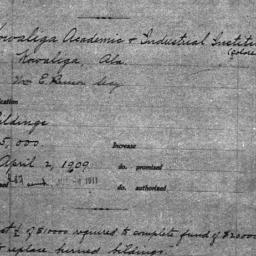 Kowaliga Academic & Industrial Institute
(Colored)
Kowaliga, Ala.
Wm E. Benson Secy
ication
ildings
5,000. Increase
April 2, 1909. do. promised
do. authorized,
of $1000 required to complete fund of $2000
to replace burned bildings.